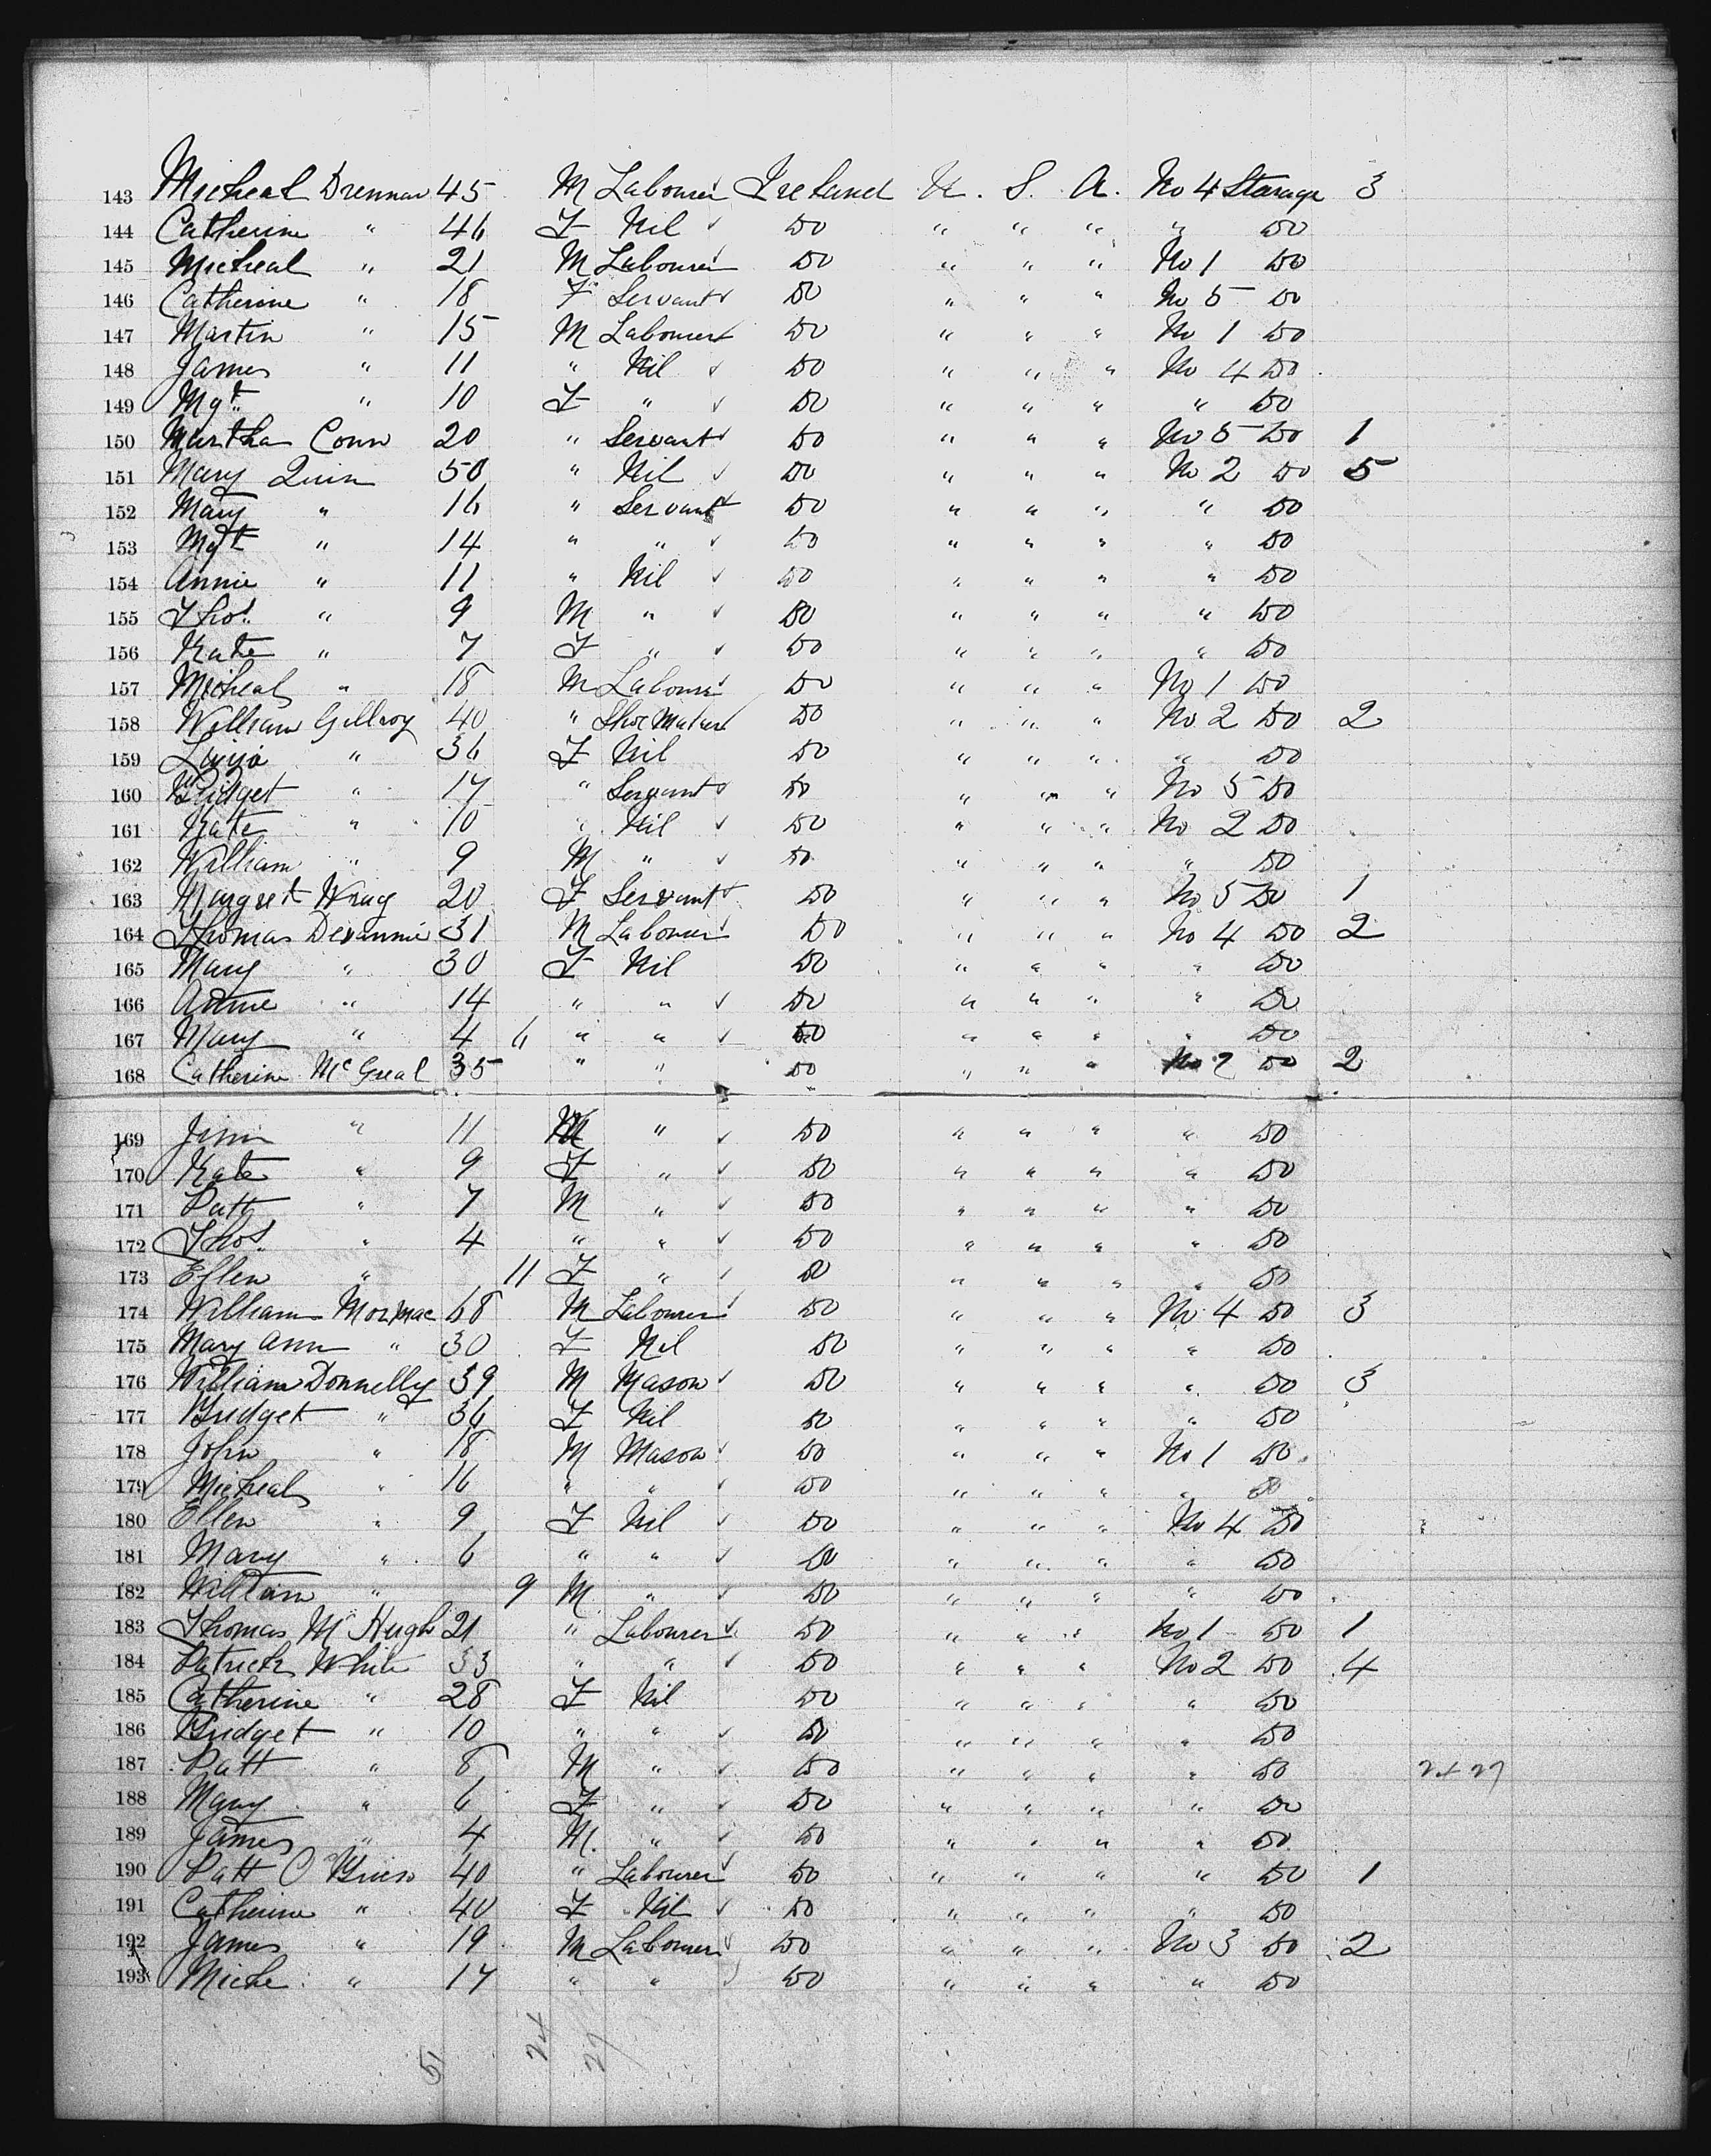 143 Micheal Drennan 45 M Labourer Ireland U. S. A. No 4 Starage 3
144 Catherine " 46 F Nil ✓ Do " " " " Do
145 Micheal " 21 M Labourer Do " " " No 1 Do
146 Catherine " 18 F Servant ✓ Do " " " No 5 Do
147 Martin " 15 M Labourer Do " " " No 1 Do
148 James " 11 " Nil ✓ Do " " " No 4 Do
149 Mgt " 10 F " ✓ Do " " " " Do
150 Martha Conn 20 " Servant ✓ Do " " " No 5 Do 1
151 Mary Quin 50 " Nil ✓ Do " " " No 2 Do 5
152 Mary " 16 " Servant Do " " " " Do
153 Mgt " 14 " " ✓ Do " " " " Do
154 Annie " 11 " Nil ✓ Do " " " " Do
155 Thos " 9 M " ✓ Do " " " " Do
156 Kate " 7 F " ✓ Do " " " " Do
157 Micheal " 18 M Labourer Do " " " No 1 Do
158 William Gillroy 40 " Shoe Maker Do " " " No 2 Do 2
159 " 36 F Nil Do " " " " Do
160 Bridget " 17 " Servant ✓ Do " " " No 5 Do
161 Kate " 10 " Nil ✓ Do " " " No 2 Do
162 William " 9 M " ✓ Do " " " " Do
163 Margret Wray 20 F Servant ✓ Do " " " No 5 Do 1
164 Thomas Devannie 31 M Labourer Do " " " No 4 Do 2
165 Mary " 30 F Nil Do " " " " Do
166 Annie " 14 " " ✓ Do " " " " Do
167 Mary " 4 6 " " ✓ Do " " " " Do
168 Catherine McGreal 35 " " Do " " " No 2 Do 2
169 " 11 M " ✓ Do " " " " Do
170 Kate " 9 F " ✓ Do " " " " Do
171 Patt " 7 M " ✓ Do " " " " Do
172 Thos " 4 " " ✓ Do " " " " Do
173 Ellen " 11 F " ✓ Do " " " " Do
174 William 68 M Labourer Do " " " No 4 Do 3
175 Mary Ann " 30 F Nil Do " " " " Do
176 William Donnelly 39 M Mason ✓ Do " " " " Do 3
177 Bridget " 36 F Nil Do " " " " Do
178 John " 18 M Mason ✓ Do " " " No 1 Do
179 Micheal " 16 " " ✓ Do " " " " Do
180 Ellen " 9 F Nil ✓ Do " " " No 4 Do
181 Mary " 6 " " ✓ Do " " " " Do
182 William " 9 M " ✓ Do " " " " Do
183 Thomas McHugh 21 " Labourer ✓ Do " " " No 1 Do 1
184 Patrick White 33 " " ✓ Do " " " No 2 Do 4
185 Catherine " 28 F Nil Do " " " " Do
186 Bridget " 10 " " ✓ Do " " " " Do
187 Patt " 8 M " ✓ Do " " " " Do 24 27
188 Mary " 6 F " ✓ Do " " " " Do
189 James " 4 M. " ✓ Do " " " " Do
190 Patt O'Brien 40 " Labourer ✓ Do " " " " Do 1
191 Catherine " 40 F Nil ✓ Do " " " " Do
192 James " 19 M Labourer ✓ Do " " " No 3 Do 2
193 Miche " 17 " " ✓ Do " " " " Do
51 24 27